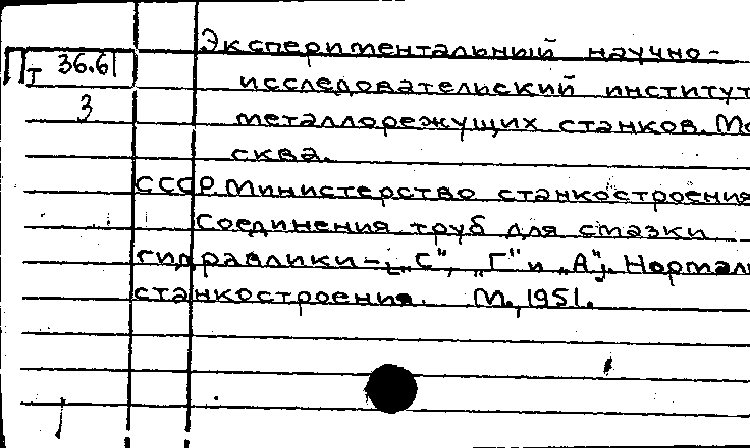 Экспериментальный научно-
Пт 36.61
исследовательский институт
3
металлорежущих станков. Мо
сква.
СССР. Министерство станкостроения
Соединения труб для смазки
гидравлики – „С", „Г" и „А". Нормал
станкостроения. М., 1951.